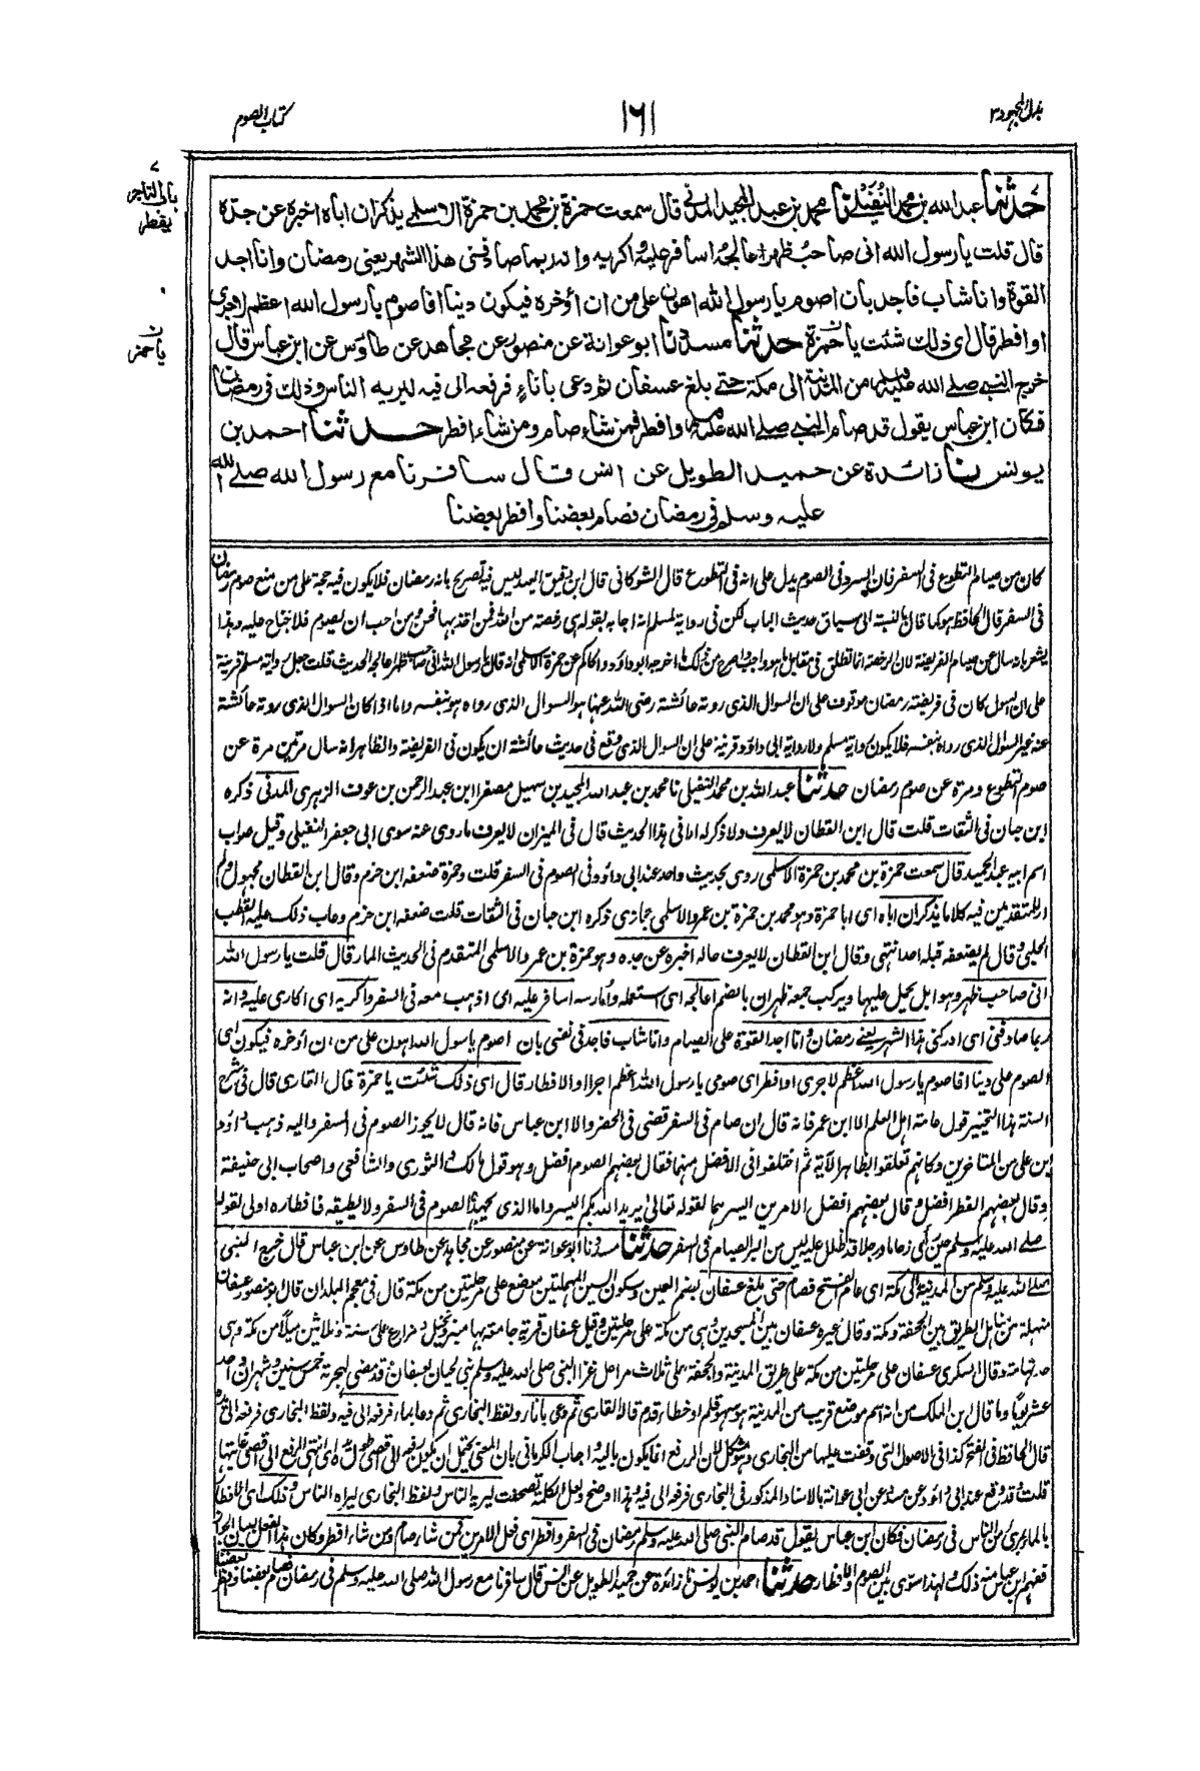 بذل المجهود ٣
١٦١
كتاب الصوم
باب التاجر
يفطر
ن
يا حمز
حدثنا عبد الله بن محمد النفيلي نا محمد بن عبد المجيد المدني قال سمعت حمزة بن محمد بن حمزة الاسلمي يذكر ان اباه اخبره عن جده
قال قلت يا رسول الله اني صاحب ظهر اعالجه اسافر عليه واكريه وانه ربما صادفني هذا الشهر يعني رمضان وانا اجد
القوة وانا شاب فاجد بان اصوم يا رسول الله اهون علي من ان اؤخره فيكون دينا افاصوم يا رسول الله اعظم لاجري
او افطر قال اي ذلك شئت يا حمزة حدثنا مسدد نا ابو عوانة عن منصور عن مجاهد عن طاؤس عن ابن عباس قال
خرج النبي صلى الله عليه وسلم من المدينة الى مكة حتى بلغ عسفان ثم دعى باناءٍ فرفعه الى فيه ليريه الناس وذلك في رمضان
فكان ابن عباس يقول قد صام النبي صلى الله عليه وسلم وافطر فمن شاء صام ومن شاء افطر حدثنا احمد بن
يونس نا زائدة عن حميد الطويل عن انس قال سافرنا مع رسول الله صلى الله
عليه وسلم في رمضان فصام بعضنا وافطر بعضنا
كان من صيام التطوع في السفر فان السرد في الصوم يدل على انه في التطوع قال الشوكاني قال ابن دقيق العيد ليس فيه تصريح بانه رمضان فلا يكون فيه حجة على من منع صوم رمضان
في السفر قال الحافظ هو كما قال بالنسبة الى سياق حديث الباب لكن في رواية لمسلم انه اجابه بقوله هي رخصة من الله فمن اخذ بها فحسن ومن احب ان يصوم فلا جناح عليه وهذا
يشعر بانه سال عن صيام الفريضة لان الرخصة انما تطلق في مقابل ما هو واجب واصرح من ذلك ما اخرجه ابو داؤد والحاكم عن حمزة الاسلمي انه قال يا رسول الله اني صاحب ظهر اعالجه الحديث قلت جعل رواية مسلم قرينة
على ان السوال كان في فريضة رمضان موقوف على ان السوال الذي روته عائشة رضي الله عنها هو السوال الذي رواه هو بنفسه واما اذا كان السوال الذي روته عائشة
عنه غير السوال الذي رواه بنفسه فلا يكون رواية مسلم ولا رواية ابي داؤد قرينة على ان السوال الذي وقع في حديث عائشة ان يكون في الفريضة والظاهر انه سال مرتين مرة عن
صوم التطوع ومرة عن صوم رمضان حدثنا عبد الله بن محمد النفيلي نا محمد بن عبد المجيد بن سهيل مصغرا ابن عبد الرحمن بن عوف الزهري المدني ذكره
ابن حبان في الثقات قلت قال ابن القطان لا يعرف ولا ذكر له الا في هذا الحديث قال في الميزان لا يعرف ما روى عنه سوى ابي جعفر النفيلي وقيل صواب
اسم ابيه عبد الحميد قال سمعت حمزة بن محمد بن حمزة الاسلمي روى بحديث واحد عند ابي داؤد في الصوم في السفر قلت وحمزة ضعفه ابن حزم وقال ابن القطان مجهول ولم
ار للمتقدمين فيه كلاما يذكر ان اباه اي ابا حمزة وهو محمد بن حمزة بن عمرو الاسلمي حجازي ذكره ابن حبان في الثقات قلت ضعفه ابن حزم وعاب ذلك عليه القطب
الحلبي وقال لم يضعفه قبله احد انتهى وقال ابن القطان لا يعرف حاله اخبره عن جده وهو حمزة بن عمرو الاسلمي المتقدم في الحديث المار قال قلت يا رسول الله
اني صاحب ظهر وهو ابل يحمل عليها ويركب جمعه ظهران بالضم اعالجه اي استعمله وامارسه اسافر عليه اي اذهب معه في السفر واكريه اي اكاري عليه وانه
ربما صادفني اي ادركني هذا الشهر يعني رمضان وانا اجد القوة على الصيام وانا شاب فاجد في نفسي بان اصوم يا رسول الله اهون علي من ان اؤخره فيكون اي
الصوم علي دينا افاصوم يا رسول الله اعظم لاجري او افطر اي صومي يا رسول الله اعظم اجرا او الافطار قال اي ذلك شئت يا حمزة قال القاري قال في شرح
السنة هذا التخيير قول عامة اهل العلم الا ابن عمر فانه قال ان صام في السفر قضى في الحضر والا ابن عباس فانه قال لا يجوز الصوم في السفر واليه ذهب داؤد
ابن علي من المتاخرين وكانهم تعلقوا بظاهر الآية ثم اختلفوا في الافضل منهما فقال بعضهم الصوم افضل وهو قول مالك والثوري والشافعي واصحاب ابي حنيفة
وقال بعضهم الفطر افضل وقال بعضهم افضل الامرين ايسرهما لقوله تعالى يريد الله بكم اليسر واما الذي يجهده الصوم في السفر ولا يطيقه فافطاره اولى لقوله
صلى الله عليه وسلم حين رأى زحاما ورجلا قد ظلل عليه ليس من البر الصيام في السفر حدثنا مسدد نا ابو عوانة عن منصور عن مجاهد عن طاؤس عن ابن عباس قال خرج النبي
صلى الله عليه وسلم من المدينة الى مكة اي عام الفتح فصام حتى بلغ عسفان بضم العين وسكون السين المهملتين موضع على مرحلتين من مكة قال في معجم البلدان قال ابو منصور عسفان
منهلة من مناهل الطريق بين الجحفة ومكة وقال غيره عسفان بين المسجدين وهي من مكة على مرحلتين وقيل عسفان قرية جامعة بها منبر ونخيل ومزارع على ستة وثلاثين ميلاً من مكة وهي
حد تهامة وقال السكري عسفان على مرحلتين من مكة على طريق المدينة والجحفة على ثلاث مراحل غزا النبي صلى الله عليه وسلم بني لحيان بعسفان وقد مضى لهجرته خمس سنين وشهران واحد
عشر يوماً وما قال ابن الملك من انه اسم موضع قريب من المدينة هو سهو قلم او خطاء قدم قاله القاري ثم دعى باناء ولفظ البخاري ثم دعا بماء فرفعه الى فيه ولفظ البخاري فرفعه الى يده
قال الحافظ في الفتح كذا في الاصول التي وقفت عليها من البخاري وهو مشكل لان الرفع انما يكون باليد واجاب الكرماني بان المعنى يحتمل ان يكون رفعه الى اقصى طول يده اي انتهى الرفع الى اقصى غايتها
قلت وقد وقع عند ابي داؤد عن مسدد عن ابي عوانة بالاسناد المذكور في البخاري فرفعه الى فيه وهذا اوضح ولعل الكلمة تصحفت ليريه الناس ولفظ البخاري ليراه الناس وذلك اي الافطار
بالماء بمرأى من الناس في رمضان فكان ابن عباس يقول قد صام النبي صلى الله عليه وسلم رمضان في السفر وافطر اي فعل الامرين فمن شاء صام ومن شاء افطر وكان هذا الفعل لبيان الجواز
ففهم ابن عباس منه ذلك ولهذا سوى بين الصوم والافطار حدثنا احمد بن يونس نا زائدة عن حميد الطويل عن انس قال سافرنا مع رسول الله صلى الله عليه وسلم في رمضان فصام بعضنا وافطر بعضنا